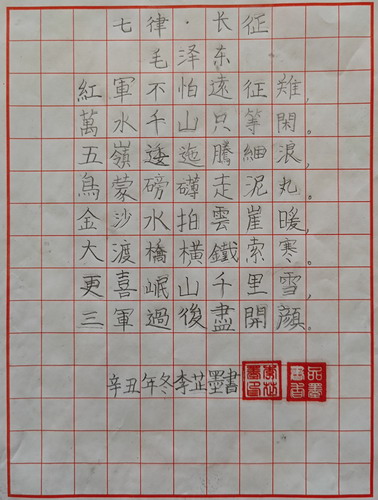 七律·长征
毛泽东
紅軍不怕遠征难,
萬水千山只等閑。
五嶺逶迤騰細浪,
烏蒙磅礴走泥丸。
金沙水拍雲崖暖,
大渡橋橫鐵索寒。
更喜岷山千里雪,
三軍過後盡開顏。
辛丑年冬李芷墨書
品墨書香